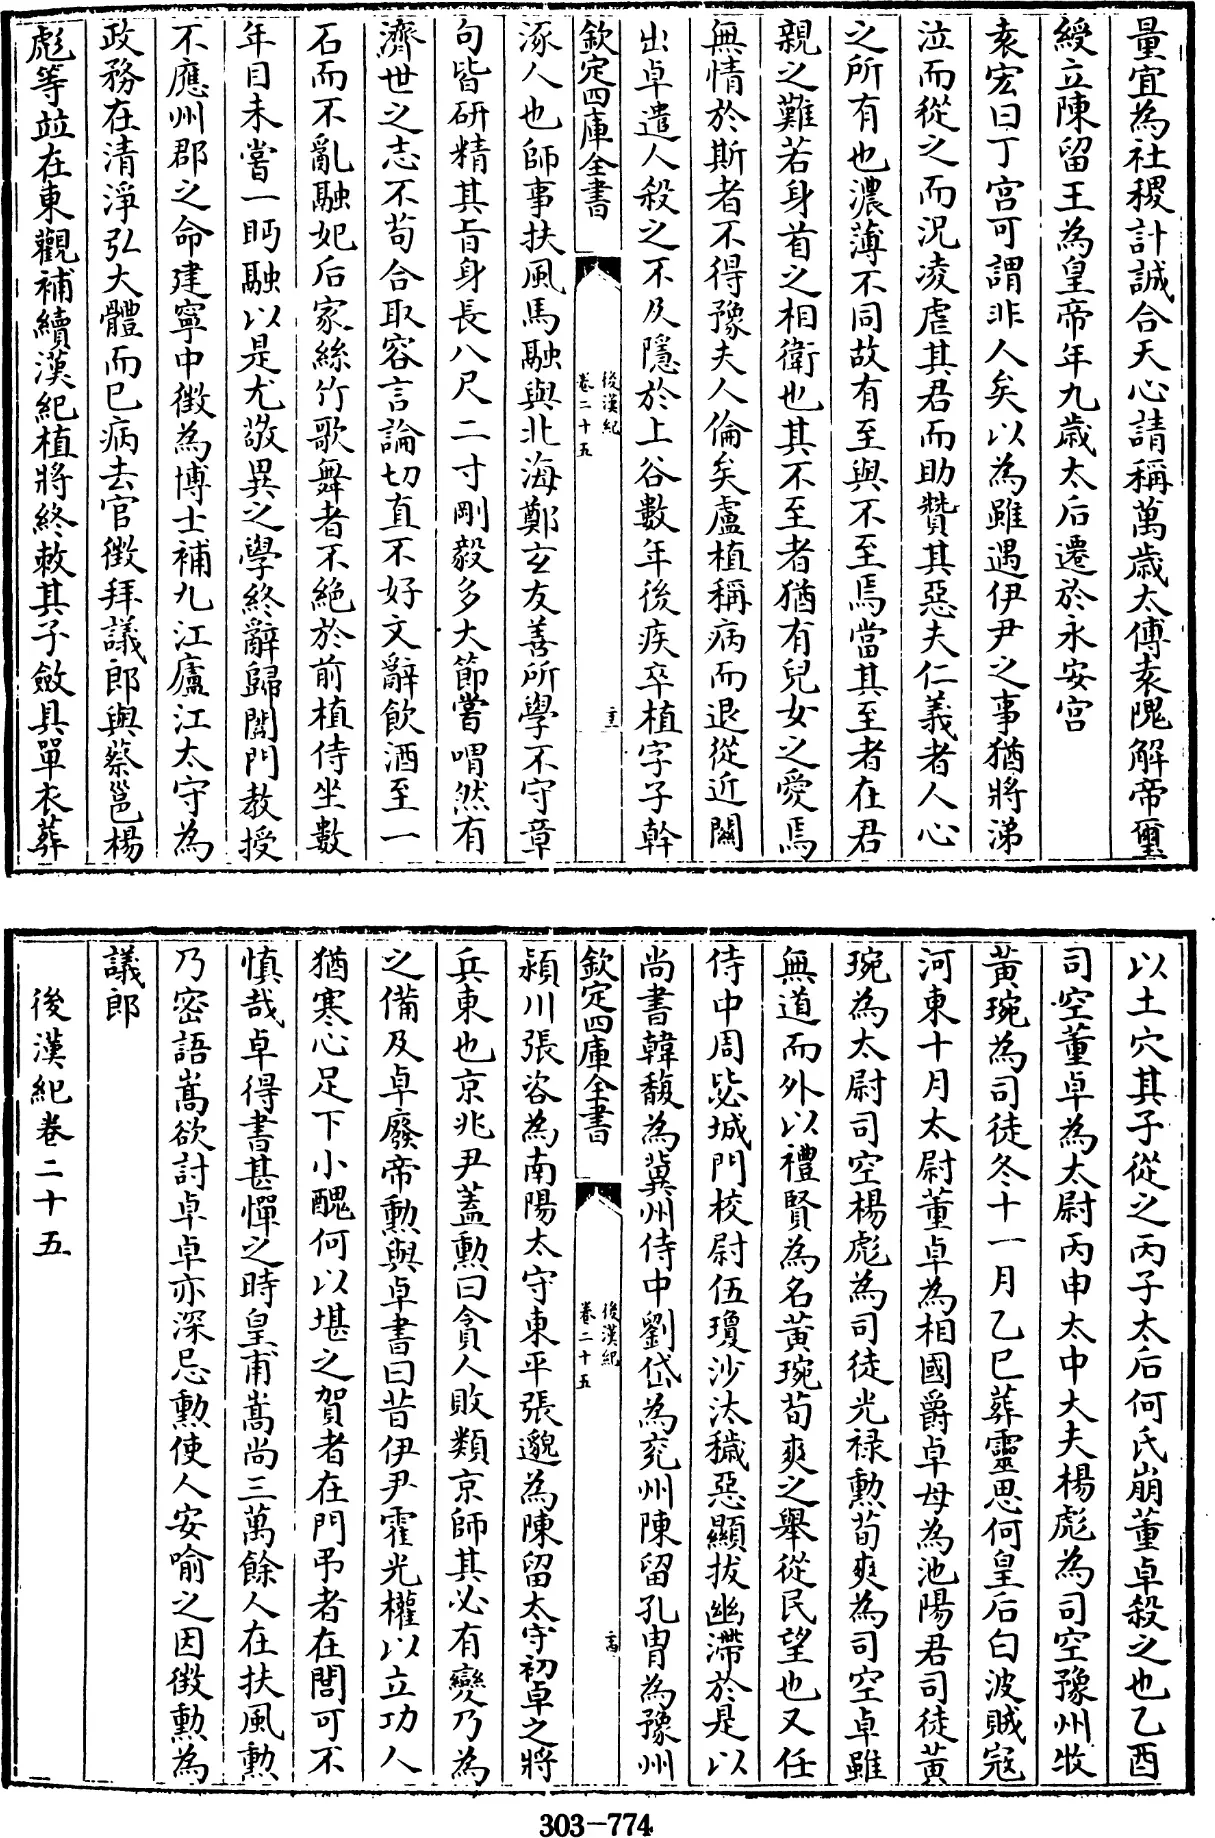 量宜為社稷計誠合天心請稱萬歲太傅袁隗解帝璽
綬立陳留王為皇帝年九歲太后遷於永安宫
袁宏曰丁宫可謂非人矣以為雖遇伊尹之事猶將涕
泣而從之而況凌虐其君而助贊其惡夫仁義者人心
之所有也濃薄不同故有至與不至焉當其至者在君
親之難若身首之相衛也其不至者猶有兒女之愛焉
無情於斯者不得豫夫人倫矣盧植稱病而退從近闗
出卓遣人殺之不及隱於上谷數年後疾卒植字子幹
欽定四庫全書
後漢紀
卷二十五
涿人也師事扶風馬融與北海鄭玄友善所學不守章
句皆研精其旨身長八尺二寸剛毅多大節嘗喟然有
濟世之志不茍合取容言論切直不好文辭飲酒至一
石而不亂融妃后家絲竹歌舞者不絶於前植侍坐數
年目未嘗一眄融以是尤敬異之學終辭歸闔門教授
不應州郡之命建寧中徴為博士補九江廬江太守為
政務在清淨弘大體而已病去官徴拜議郎與蔡邕楊
彪等並在東觀補續漢紀植將終敕其子斂具單衣葬
以土穴其子從之丙子太后何氏崩董卓殺之也乙酉
司空董卓為太尉丙申太中大夫楊彪為司空豫州牧
黃琬為司徒冬十一月乙巳葬靈思何皇后白波賊寇
河東十月太尉董卓為相國爵卓母為池陽君司徒黃
琬為太尉司空楊彪為司徒光禄勲荀爽為司空卓雖
無道而外以禮賢為名黃琬荀爽之舉從民望也又任
侍中周毖城門校尉伍瓊沙汰穢惡顯拔幽滯於是以
尚書韓馥為冀州侍中劉岱為兖州陳留孔胄為豫州
欽定四庫全書
後漢紀
卷二十五
潁川張咨為南陽太守東平張邈為陳留太守初卓之將
兵東也京兆尹蓋勲曰貪人敗類京師其必有變乃為
之備及卓廢帝勲與卓書曰昔伊尹霍光權以立功人
猶寒心足下小醜何以堪之賀者在門弔者在閭可不
慎哉卓得書甚憚之時皇甫嵩尚三萬餘人在扶風勲
乃密語嵩欲討卓卓亦深忌勲使人安喻之因徴勲為
議郎
後漢紀卷二十五
303-774